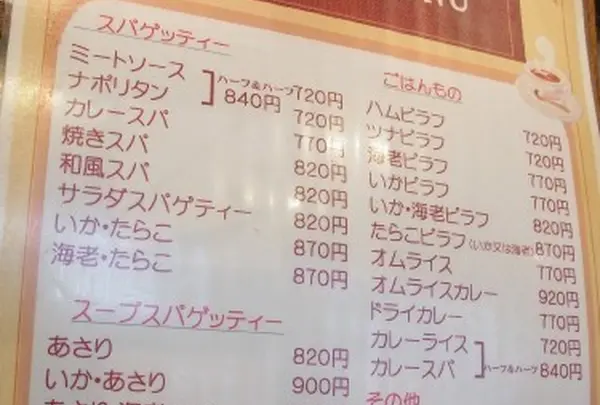 スパゲッティー
ミートソース 720円
ナポリタン 720円
ハーフ&ハーフ 840円
カレースパ 770円
焼きスパ 820円
和風スパ 820円
サラダスパゲティー 820円
いか・たらこ 870円
海老・たらこ 870円
スープスパゲッティー
あさり 820円
いか・あさり 900円
ごはんもの
ハムピラフ 720円
ツナピラフ 720円
海老ピラフ 770円
いかピラフ 770円
いか・海老ピラフ 820円
たらこピラフ(いか又は海老) 870円
オムライス 770円
オムライスカレー 920円
ドライカレー 770円
カレーライス 720円
カレースパ ハーフ&ハーフ 840円
その他